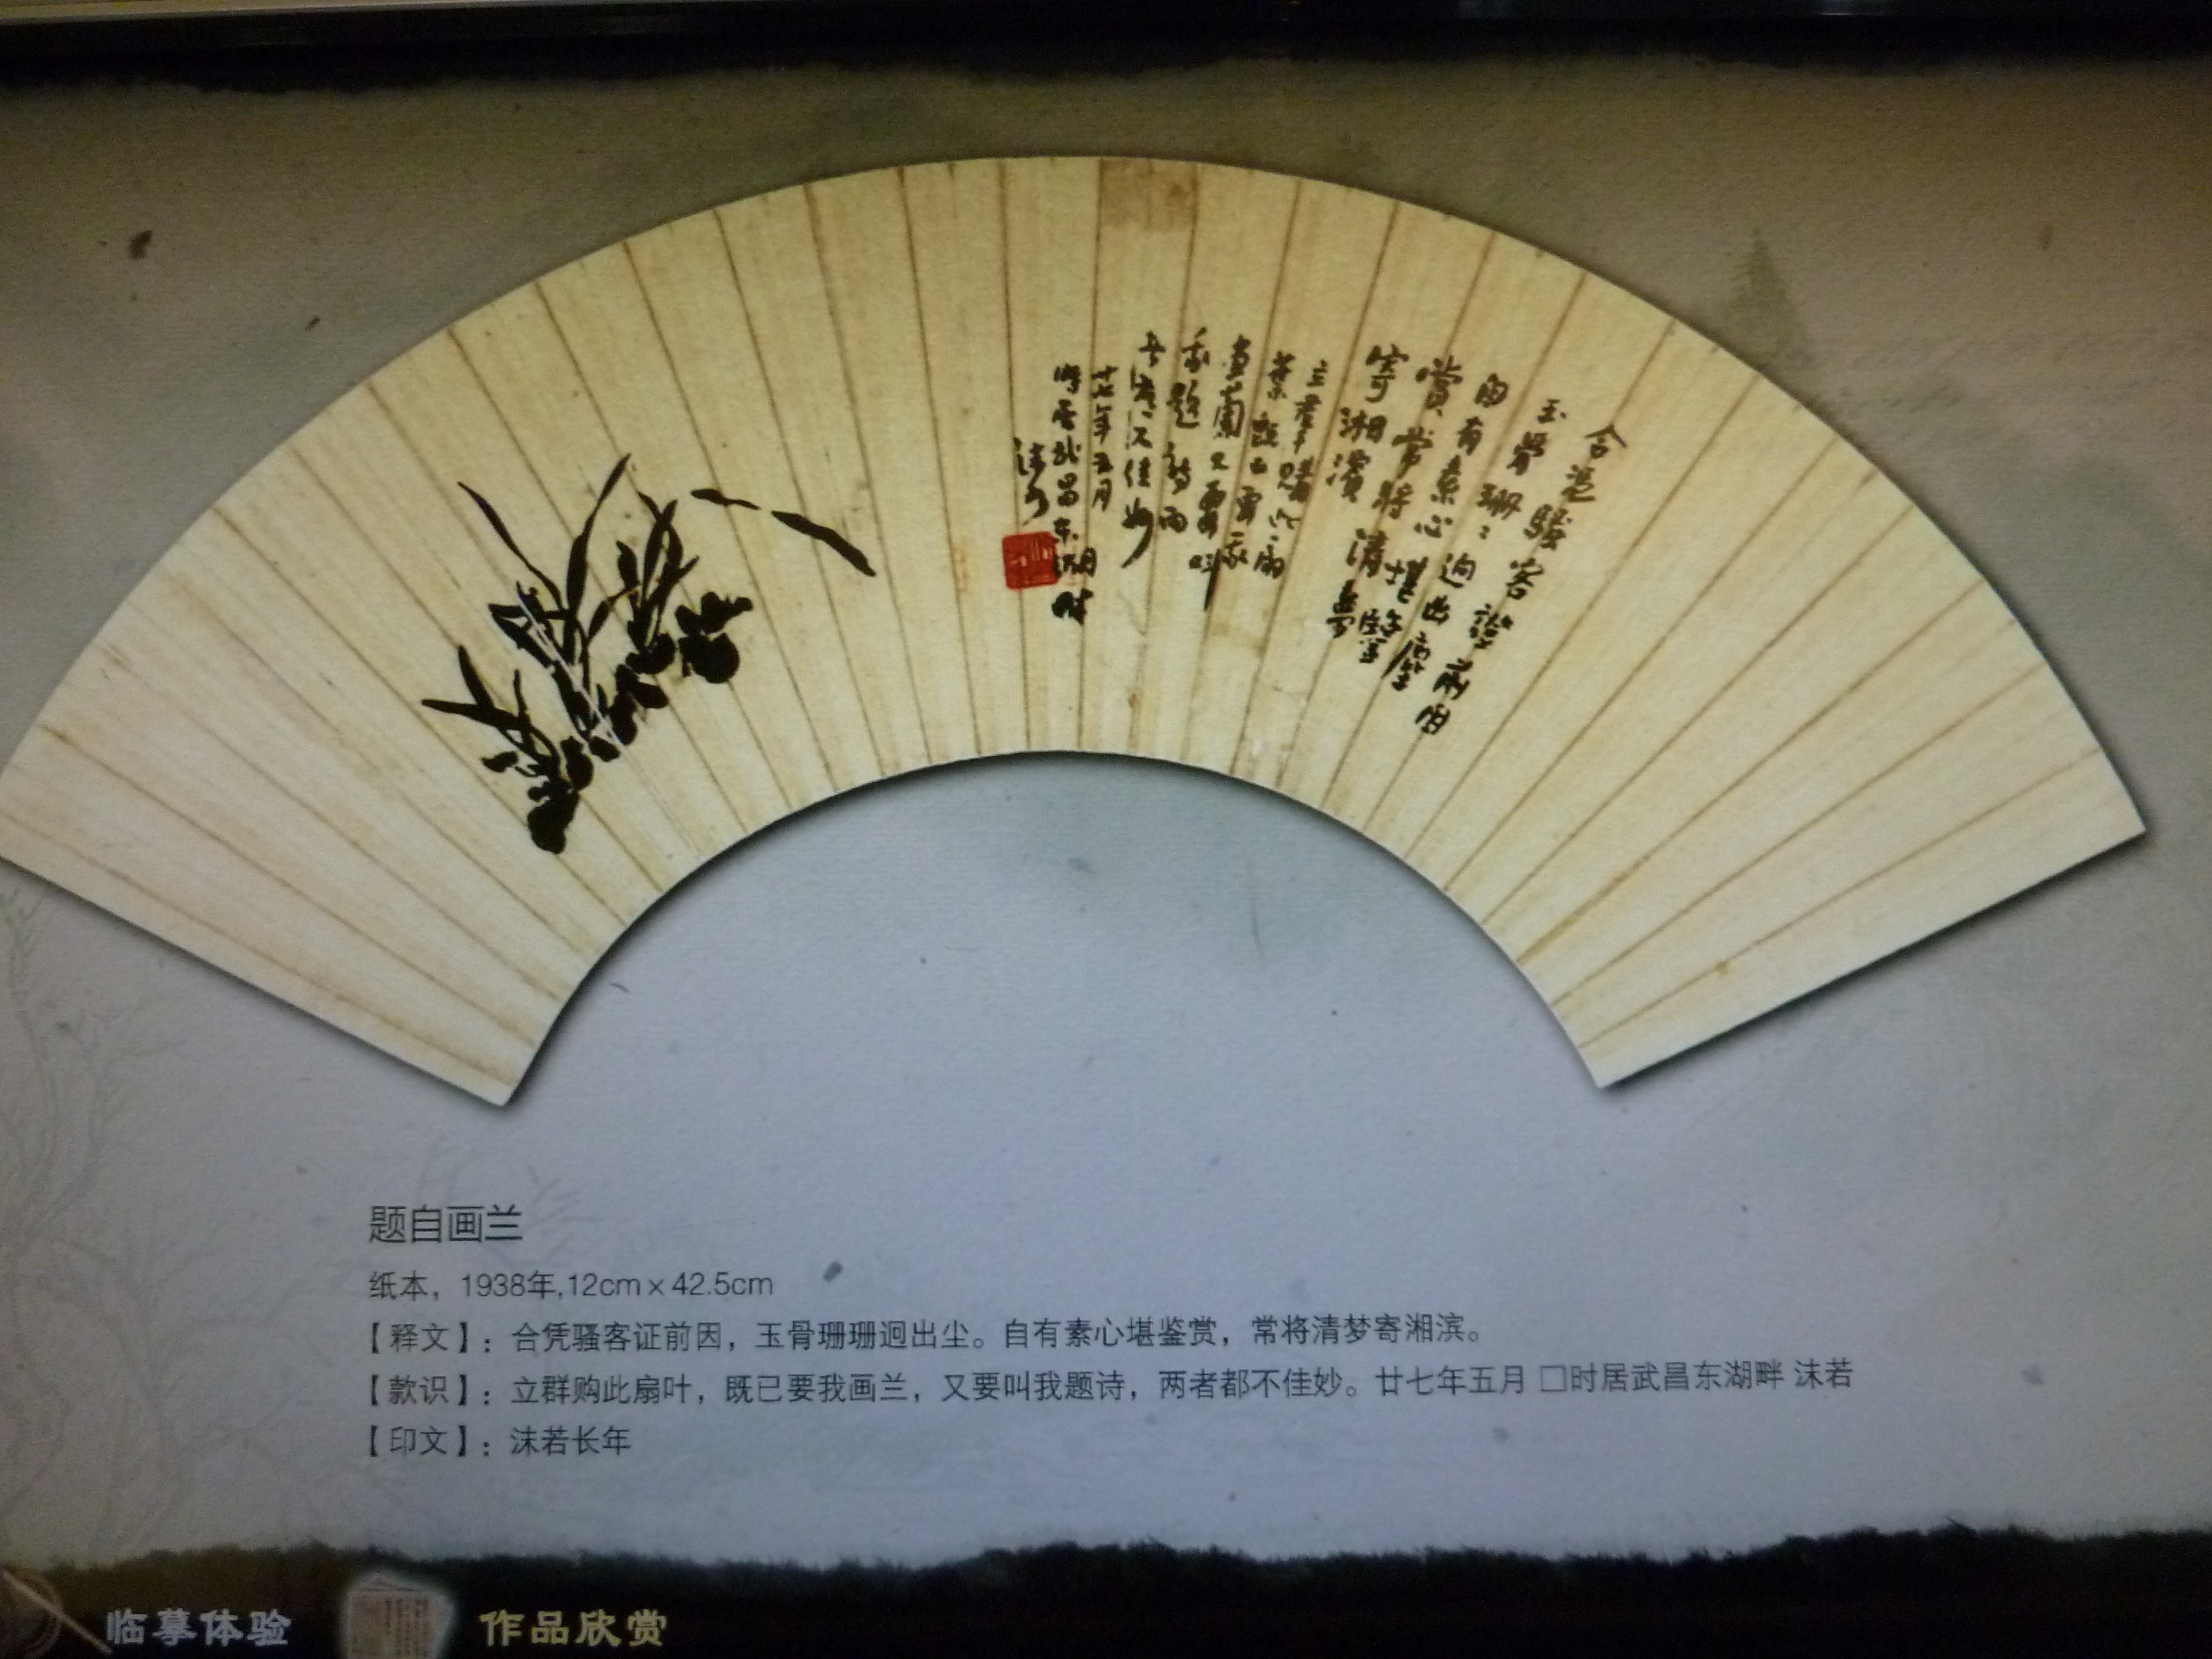 合凭骚客證前因
玉骨珊珊迥出塵
自有素心堪鑒
賞常將清夢
寄湘濱
立群購此扇
葉既已要我
畫蘭又要叫
我題詩兩
者都不佳妙
廿七年五月
時居武昌東湖畔
沫若
题自画兰
纸本，1938年,12cm×42.5cm
【释文】：合凭骚客证前因，玉骨珊珊迥出尘。自有素心堪鉴赏，常将清梦寄湘滨。
【款识】：立群购此扇叶，既已要我画兰，又要叫我题诗，两者都不佳妙。廿七年五月 □时居武昌东湖畔 沫若
【印文】：沫若长年
临摹体验
作品欣赏